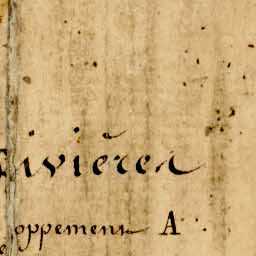 ivières
oppement A